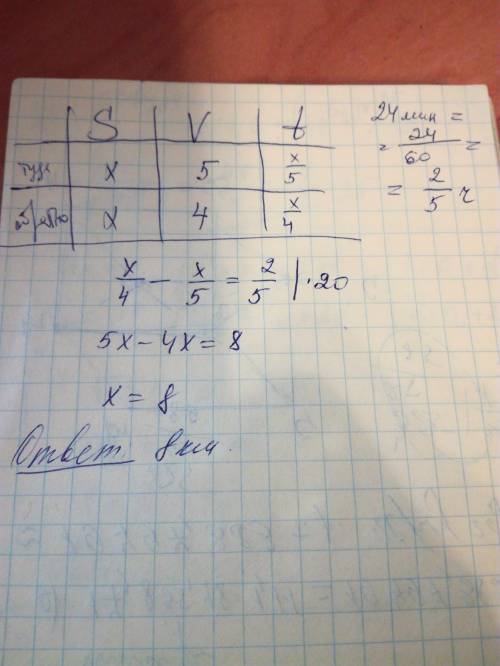 S V t
туда x 5 x/5
обратно x 4 x/4
24 мин =
= 24/60 =
= 2/5 ч
x/4 - x/5 = 2/5 | · 20
5x - 4x = 8
x = 8
Ответ 8 км.